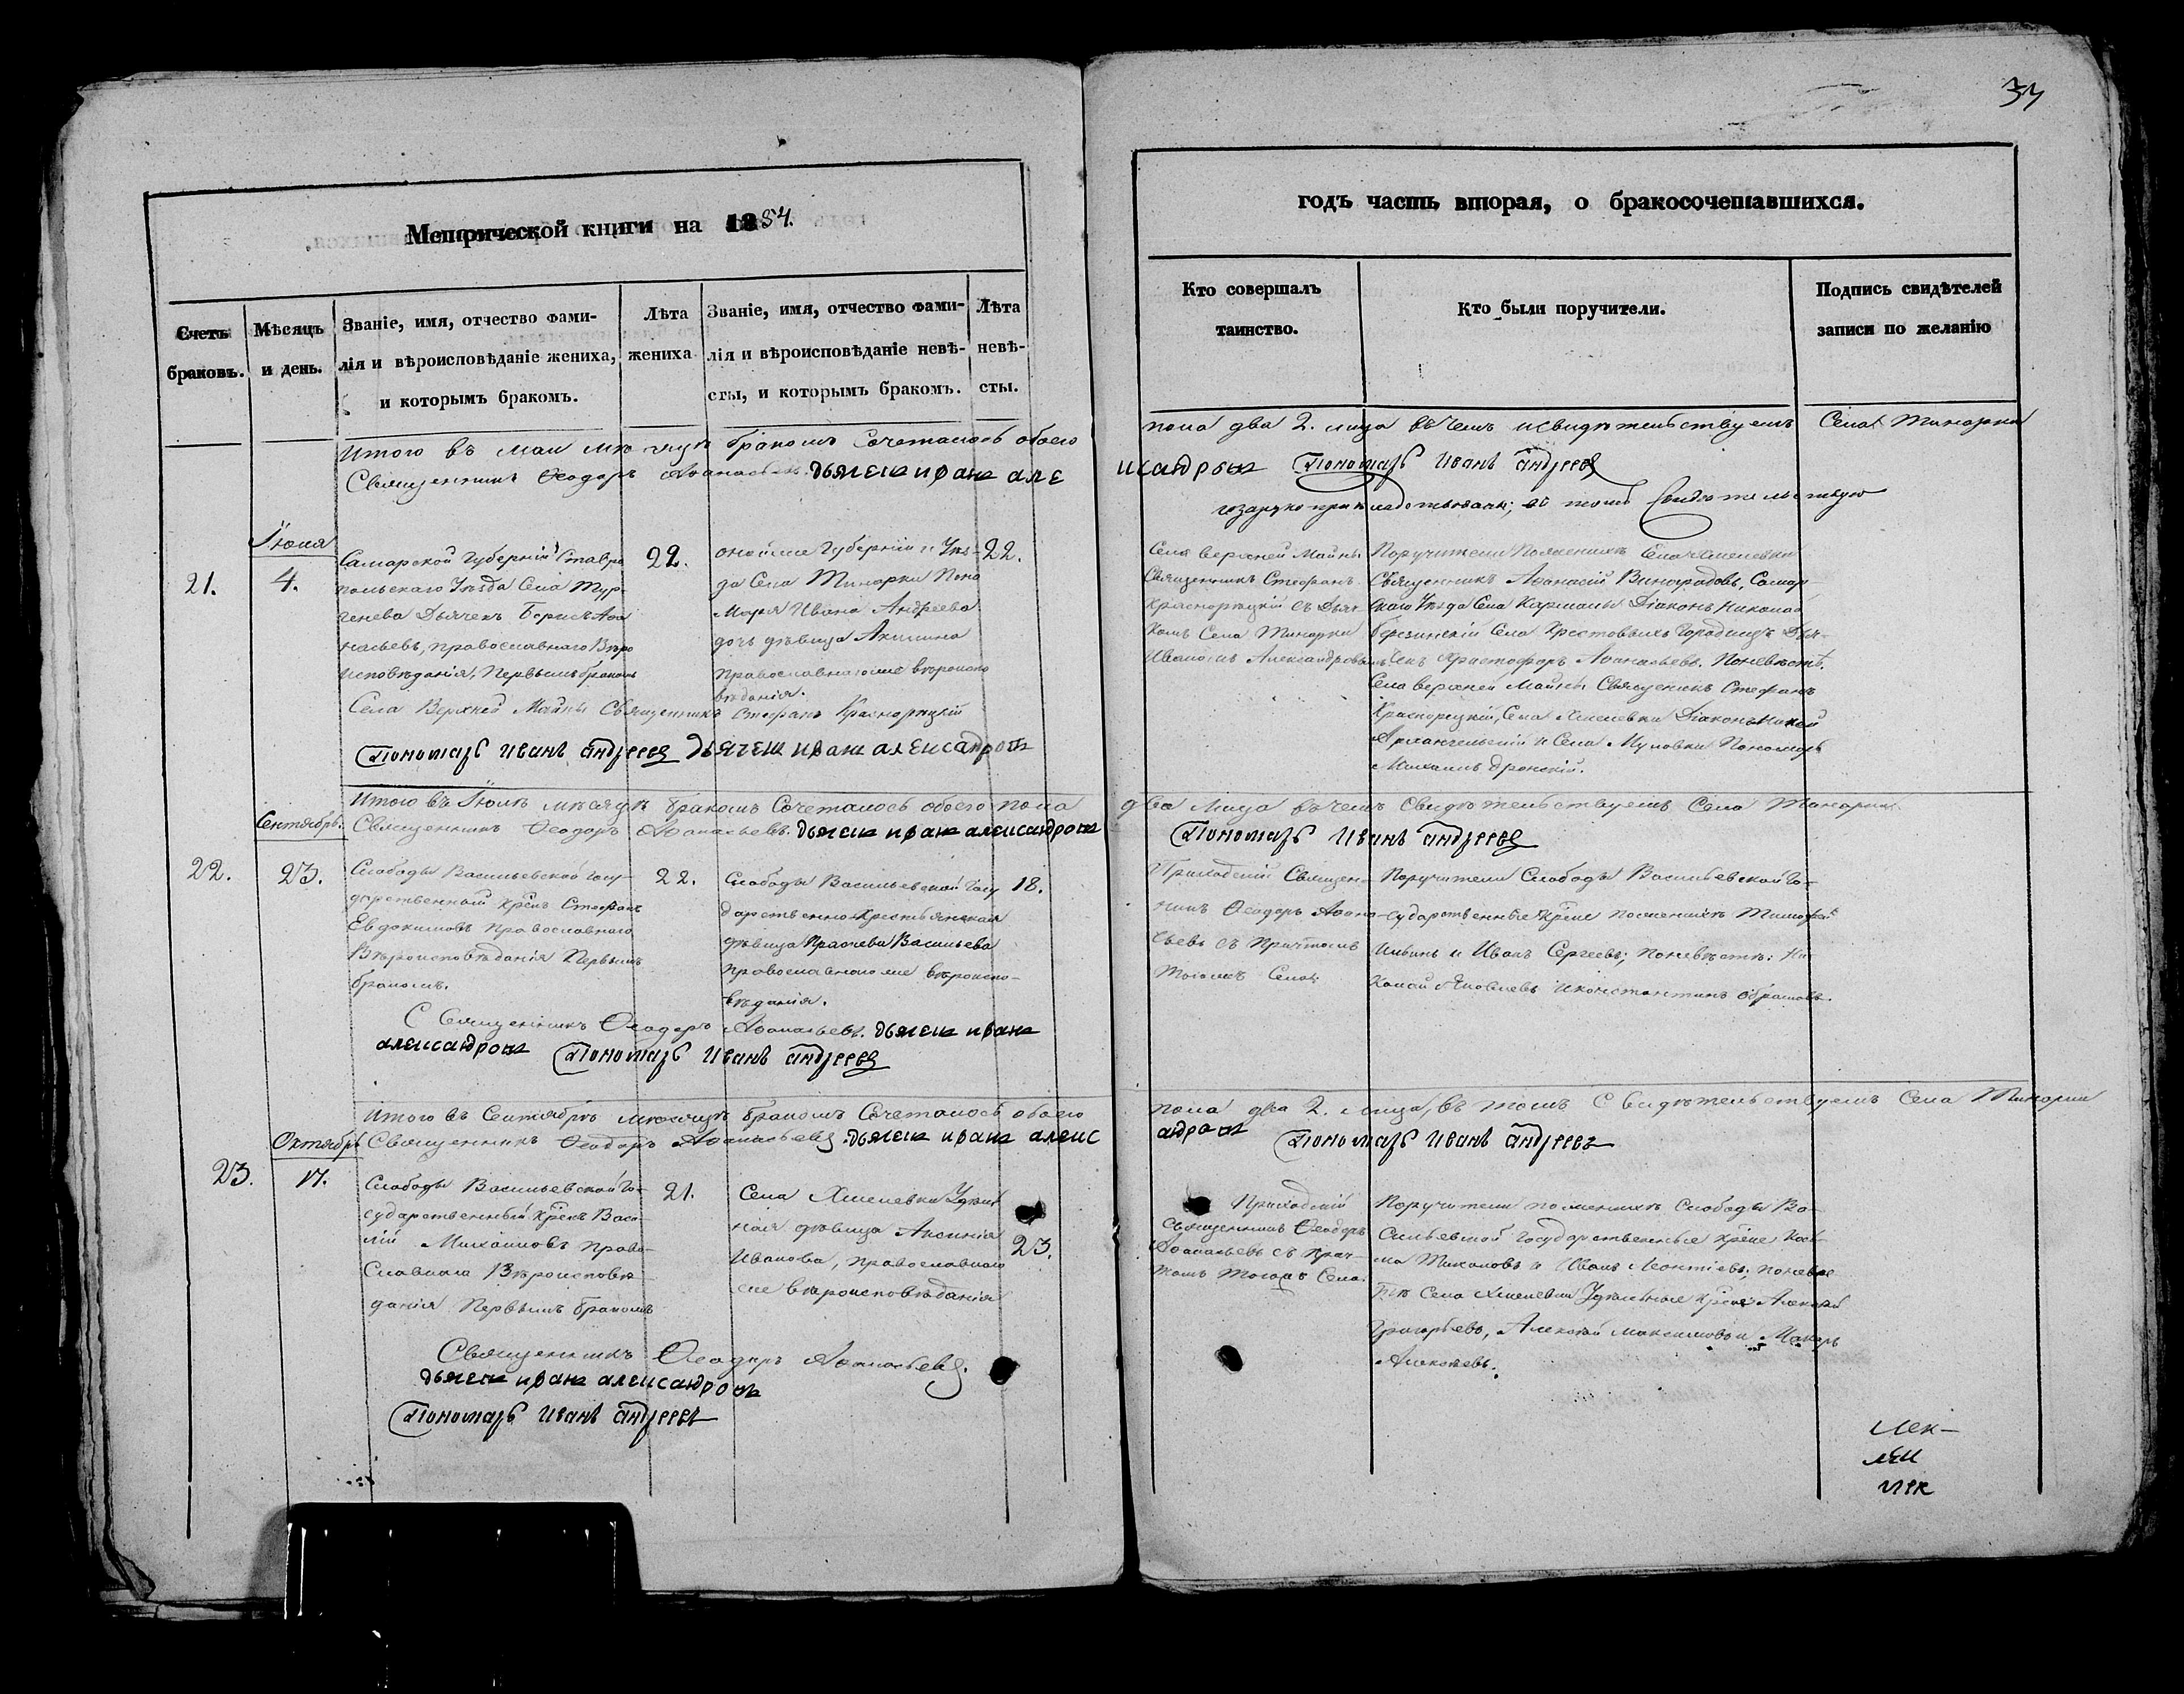 34
Метрической книги на 1854.
годъ часть вторая, о бракосочетавшихся.
Счетъ браковъ.
Мѣсяцъ и день.
Званіе, имя, отчество фами-
лія и вѣроисповѣданіе жениха,
и которымъ бракомъ.
Лѣта
жениха
Званіе, имя, отчество фами-
лія и вѣроисповѣданіе невѣ-
сты, и которымъ бракомъ.
Лѣта
невѣ-
сты.
Кто совершалъ
таинство.
Кто были поручители.
Подпись свидѣтелей
записи по желанію
Итого въ маи мѣсяцѣ бракомъ сочеталось обоего
пола два 2. лица въ чемъ и свидѣтельствуемъ Села Тинарки
Священникъ Ѳеодоръ Аѳанасьевъ. дьячекъ иванъ але
ксандровъ Пономарь Иванъ Андреевъ
Іюля
21.
4.
Самарской губерніи Ставро
польскаго Уѣзда Села Тур-
генева Дьячекъ Борисъ Аѳа
насьевъ, православнаго Вѣро
исповѣданія, Первымъ бракомъ
22.
оной же Губерніи и Уѣз-
да Села Тинарки Поно
маря Ивана Андреева
дочь дѣвица Акилина
православнаго же вѣроиспо
вѣданія.
22.
Села верхней Майны
Священникъ Стефанъ
Краснорѣцкій съ Дьяч
комъ Села Тинарки
Иваномъ Александровымъ
Поручители По женихѣ Села Хмелевки
Священникъ Аѳанасій Виноградовъ, Самар
скаго Уѣзда Села Кармалы Діаконъ Николай
Березинскій Села Крестовыхъ Городищъ Дья-
чекъ Христофоръ Аѳанасьевъ. По невѣстѣ.
Села верхней Майны Священникъ Стефанъ
Краснорецкій, Села Хмелевки Діаконъ
Архангельскій и Села Муловки Пономарь
Михаилъ
Села Верхней Майны Священникъ Стефанъ Краснорѣцкій
Пономарь Иванъ Андреевъ Дьячекъ иванъ александровъ
Итого въ Іюлѣ мѣсяцѣ бракомъ Сочеталось обоего пола
два лица въ чемъ Свидѣтельствуемъ Села Тинарки
Сентябрь.
Священникъ Ѳеодоръ Аѳанасьевъ. дьячекъ иванъ александровъ
Пономарь Иванъ Андреевъ
22.
23.
Слободы Васильевской госу-
дарственный крѣнъ Стефанъ
Евдокимовъ православнаго
Вѣроисповѣданія Первымъ
бракомъ.
22.
Слободы Васильевской госу
дарственно-крестьянская
дѣвица Прасковья Васильева
православнаго же вѣроиспо-
вѣданія.
18.
Приходскій Священ-
никъ Ѳеодоръ Аѳана-
сьевъ съ Причтомъ
Тогожъ Села
Поручители Слободы Васильевской Го-
сударственные крѣне по женихѣ Тимофей
и Иванъ Сергеевъ; по невѣстѣ: Ни
колай Яковлевъ и Константинъ Абрамовъ.
Священникъ Ѳеодоръ Аѳанасьевъ. дьячекъ иванъ
александровъ Пономарь Иванъ Андреевъ
Итого въ Сентябрѣ мѣсяцѣ бракомъ Сочеталось обоего
пола два 2. лица, въ томъ Свидѣтельствуемъ Села Тинарки
Октябрь
Священникъ Ѳеодоръ Аѳанасьевъ. дьячекъ иванъ алекс
андровъ Пономарь Иванъ Андреевъ
23.
17.
Слободы Васильевской Го-
сударственный крѣнъ Васи-
лій Михайловъ право-
славнаго Вѣроисповѣ
данія Первымъ бракомъ
21.
Села Хмелевки Удѣль
ная дѣвица Аксинія
Иванова, православнаго
же вѣроисповѣданія
23.
Приходскій
Священникъ Ѳеодоръ
Аѳанасьевъ съ прич-
томъ тогожъ Села.
Поручители по женихѣ Слободы Ва-
сильевской Государственные крѣне
Тихоновъ и Иванъ Леонтіевъ; по невѣс
тѣ Села Хмелевки Удѣльные крѣне Алексѣй
Григорьевъ, Алексѣй Максимовъ и Макаръ
Алексѣевъ.
Священникъ Ѳеодоръ Аѳанасьевъ.
дьячекъ иванъ александровъ
Пономарь Иванъ Андреевъ